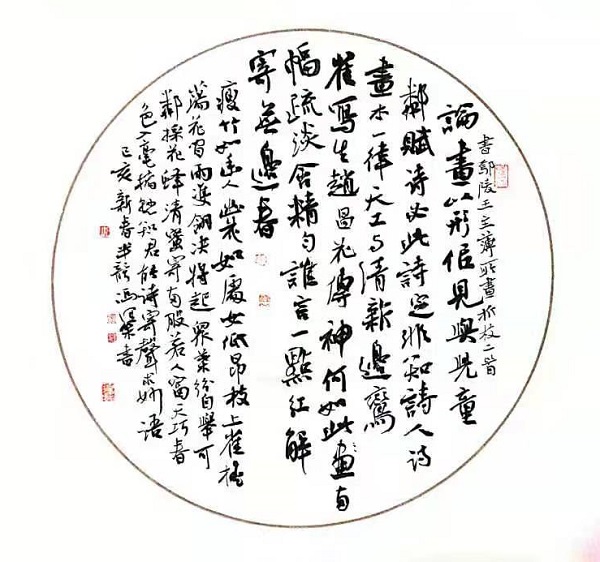 書鄢陵王主簿所畫折枝二首
論畫以形似見與兒童
鄰賦詩必此詩定非知詩人詩
畫本一律天工与清新邊鸞
雀寫生趙昌花傳神何如此畫兩
幅疏淡含精勻誰言一點紅解
寄無邊春
瘦竹如幽人幽花如處女低昂枝上雀搖
蕩花間雨雙翎決將起眾葉紛自舉可
憐採花蜂清蜜寄兩股若人富天巧春
色入毫楮懸知君能詩寄聲求妙語
己亥新春半龍馮書